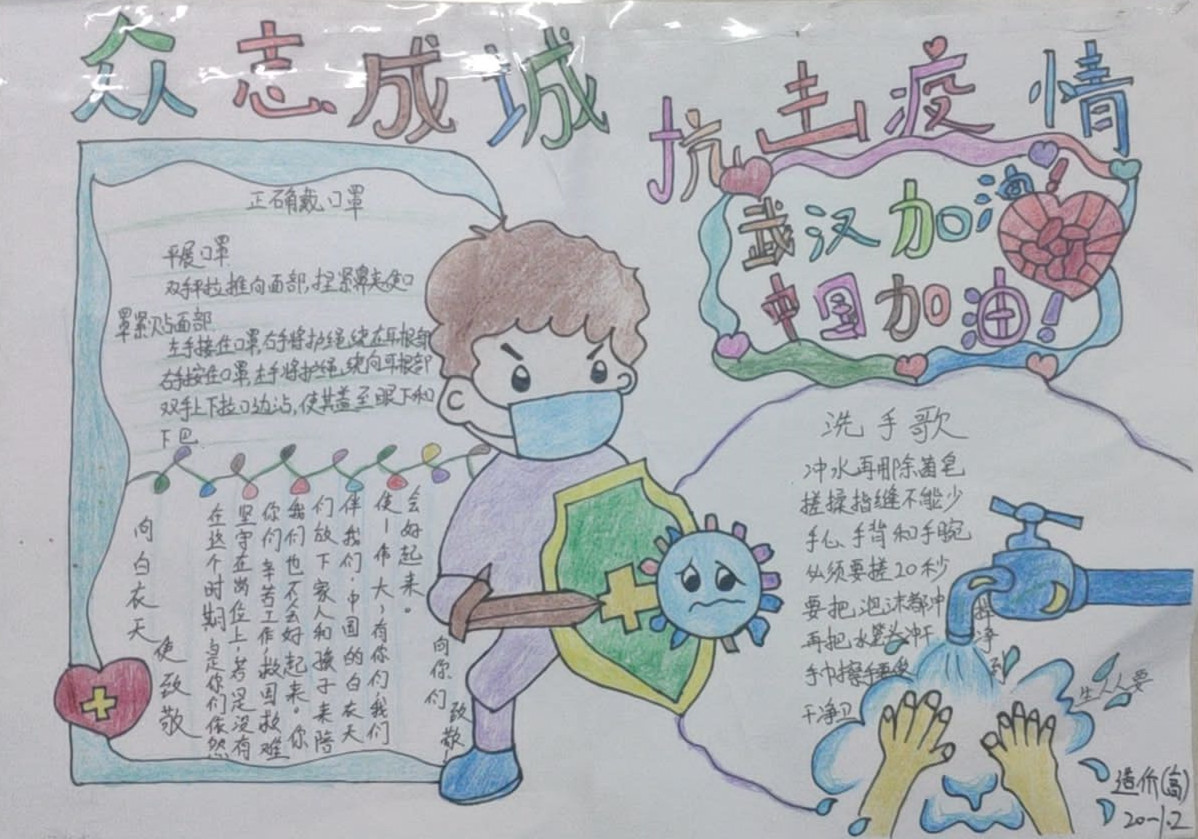 众志成城
抗击疫情
武汉加油!
中国加油!
正确戴口罩
平展口罩
双手平拉推向面部,捏紧鼻夹使口
罩紧贴面部
左手按住口罩,右手将护绳绕在耳根部
右手按住口罩,左手将护绳绕向耳根部
双手上下拉口边沿,使其盖至眼下和
下巴
向白衣天使致敬
在这个时期,是你们依然
坚守在岗位上,若是没有
你们辛苦工作,救国救难
我们也不会好起来。你
们放下家人和孩子来陪
伴我们,中国的白衣天
使一伟大,有你们我们
会好起来。
向你们致敬!
洗手歌
冲水再用除菌皂
搓揉指缝不能少
手心、手背和手腕
必须要搓20秒
要把泡沫都冲掉
再把水笼头冲干净
手巾擦手要
干净卫生人人要
造价(高)
20-1.2